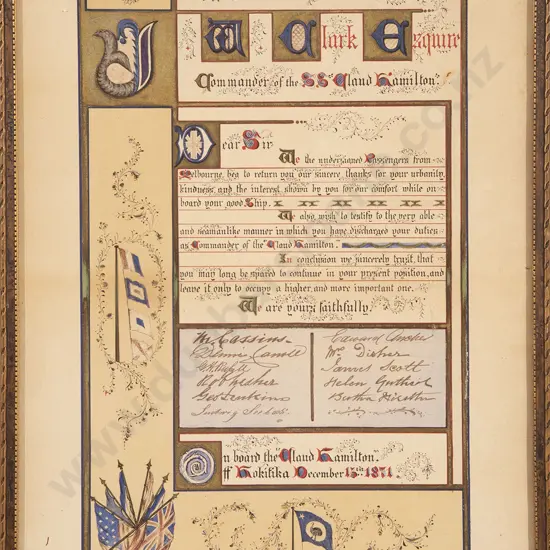 J W Clark Esquire
Commander of the "SS Claud Hamilton".
Dear Sir
We the undersigned Passengers from
Melbourne, beg to return you our sincere thanks for your urbanity,
kindness, and the interest shown by you for our comfort while on
board your good Ship.
We also wish to testify to the very able
and seamanlike manner in which you have discharged your duties
as Commander of the "Claud Hamilton".
In conclusion we sincerely trust, that
you may long be spared to continue in your present position, and
leave it only to occupy a higher, and more important one.
We are yours faithfully.
M. Cassins
Edward
Mrs Disher
James Scott
Helen
Geo Jenkins
On board the "Claud Hamilton"
off Hokitika December 15th 1871.